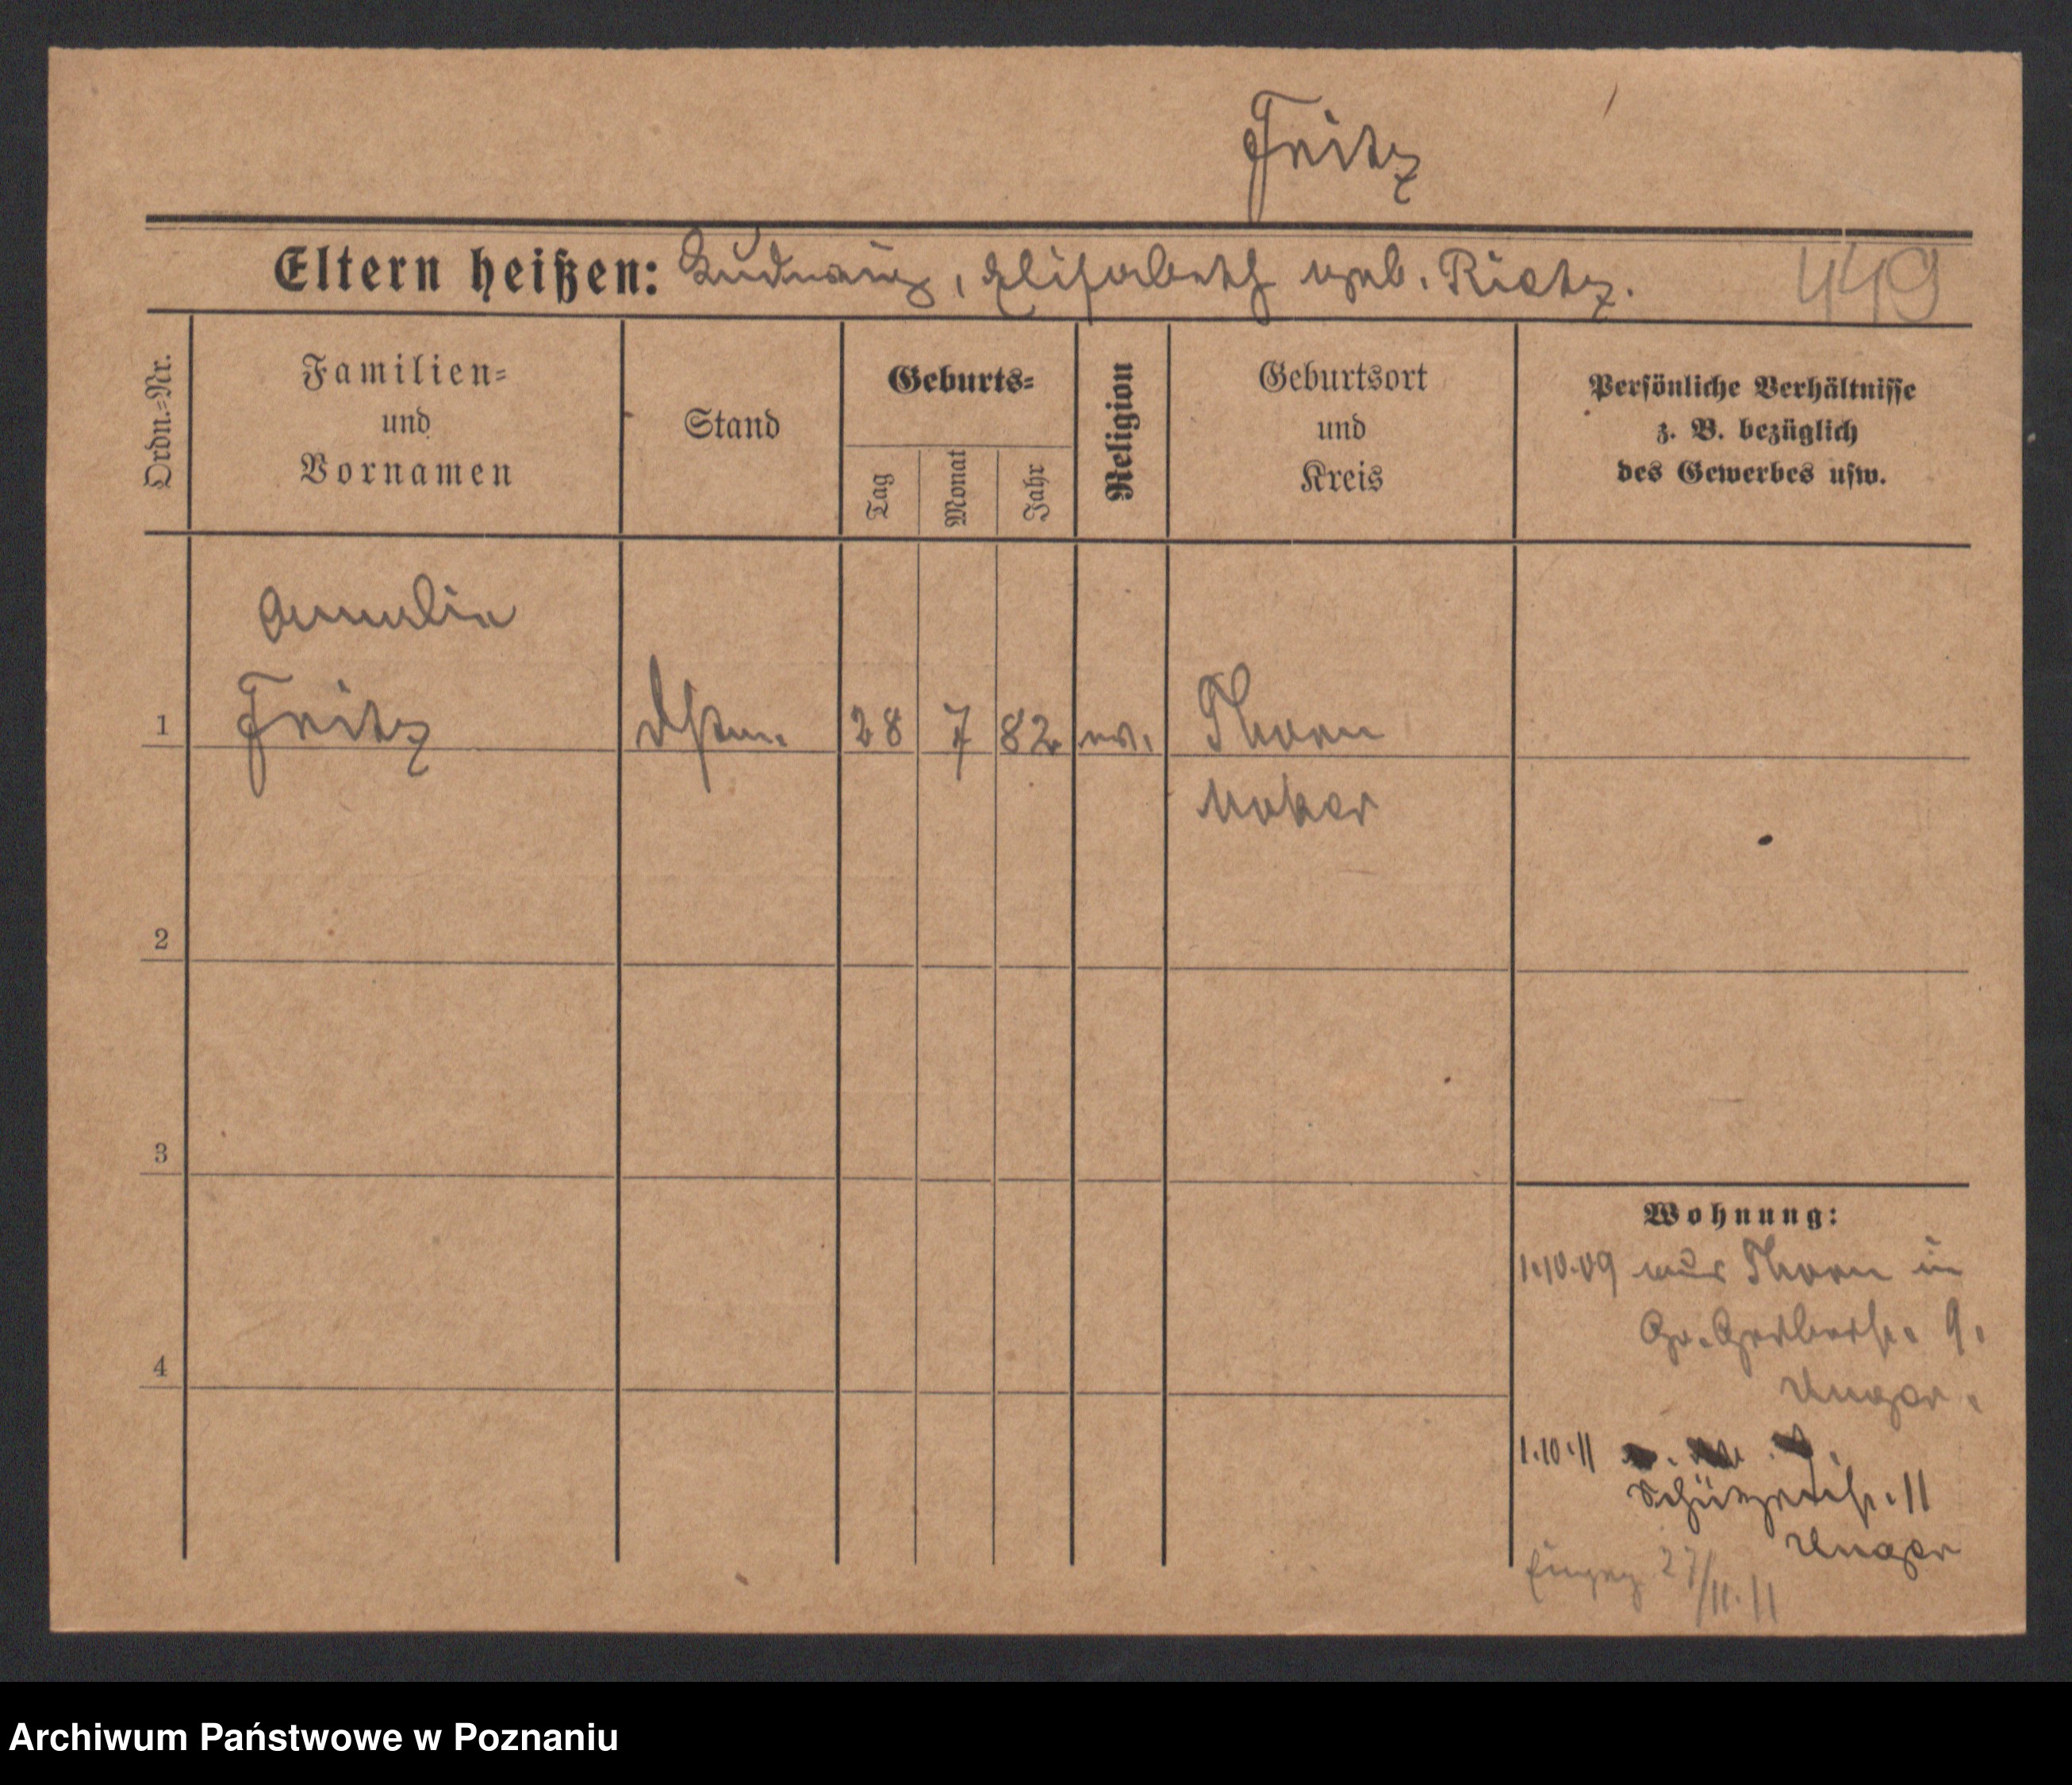 Fritz
Eltern heißen: Ludwig, Elisabeth geb. Rietz.
449
Ordn.=Nr.
Familien=
und
Vornamen
Stand
Geburts=
Tag
Monat
Jahr
Religion
Geburtsort
und
Kreis
Persönliche Verhältnisse
z. B. bezüglich
des Gewerbes usw.
Fritz
1
28 7 82 ev. Thorn
Mocker
2
3
4
Wohnung:
1.10.09 aus Thorn in
Gr. Gerberstr. 9.
Unger.
1.10.11
Schützenstr. 11
Unger
27/11.11
Archiwum Państwowe w Poznaniu